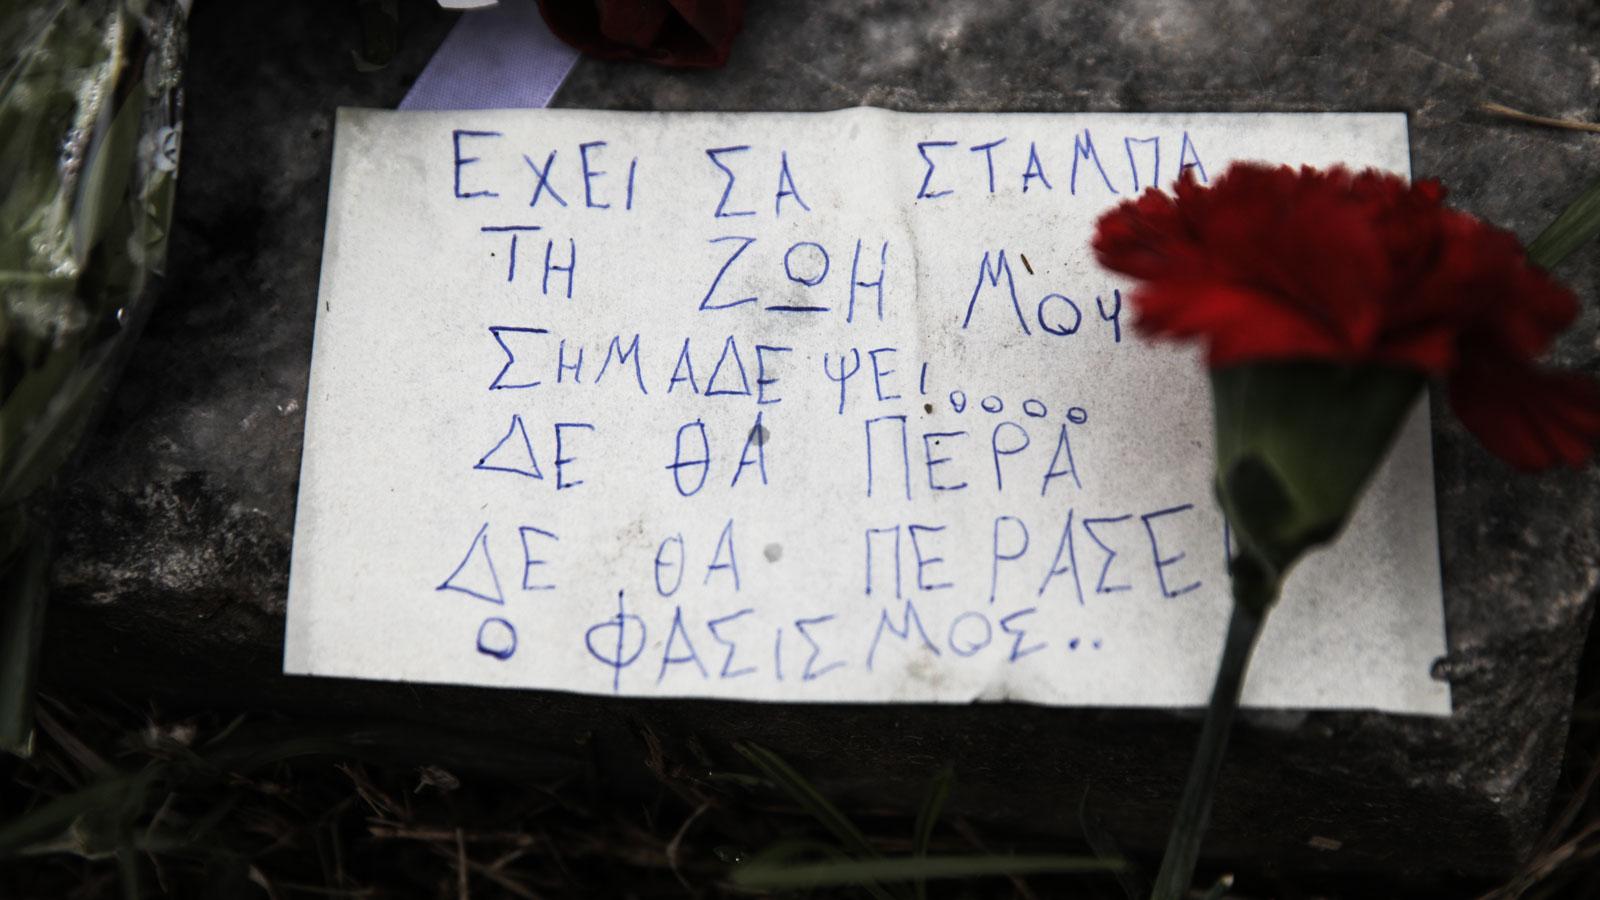 ΕΧΕΙ ΣΑ ΣΤΑΜΠΑ
ΤΗ ΖΩΗ ΜΟΥ
ΣΗΜΑΔΕΨΕΙ....
ΔΕ ΘΑ ΠΕΡΑ
ΔΕ ΘΑ ΠΕΡΑΣΕΙ
Ο ΦΑΣΙΣΜΟΣ..